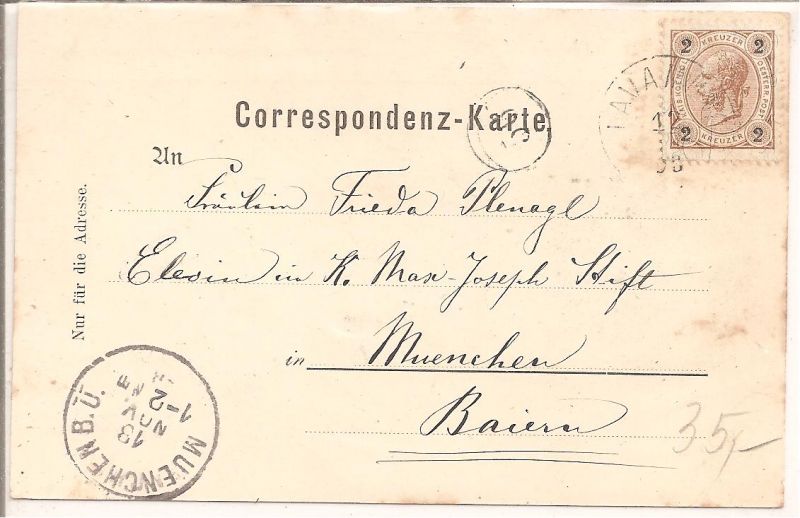 2 KREUZER 2
KAIS. KOENIGL.
OESTERR. POST
2 KREUZER 2
LAVA
Correspondenz-Karte
An
Fräulein Frieda Plenagl
Elevin in K. Max-Joseph Stift
in Muenchen
Baiern
Nur für die Adresse.
MUENCHEN B.Ü.
13
NOV
1-2
35,-